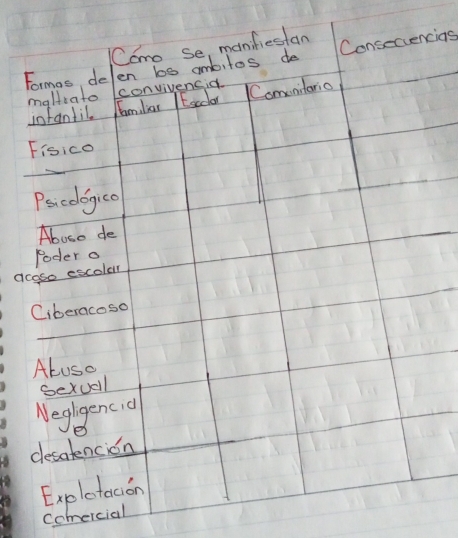 Formas de
maltrato
infantil
Cómo se manifiestan
en los ambitos de
convivencia
Consecuencias
Familiar Escolar Comunitario
Físico
Psicológico
Abuso de
Poder o
acoso escolar
Ciberacoso
Abuso
sexual
Negligencia
o
desatención
Explotación
comercial